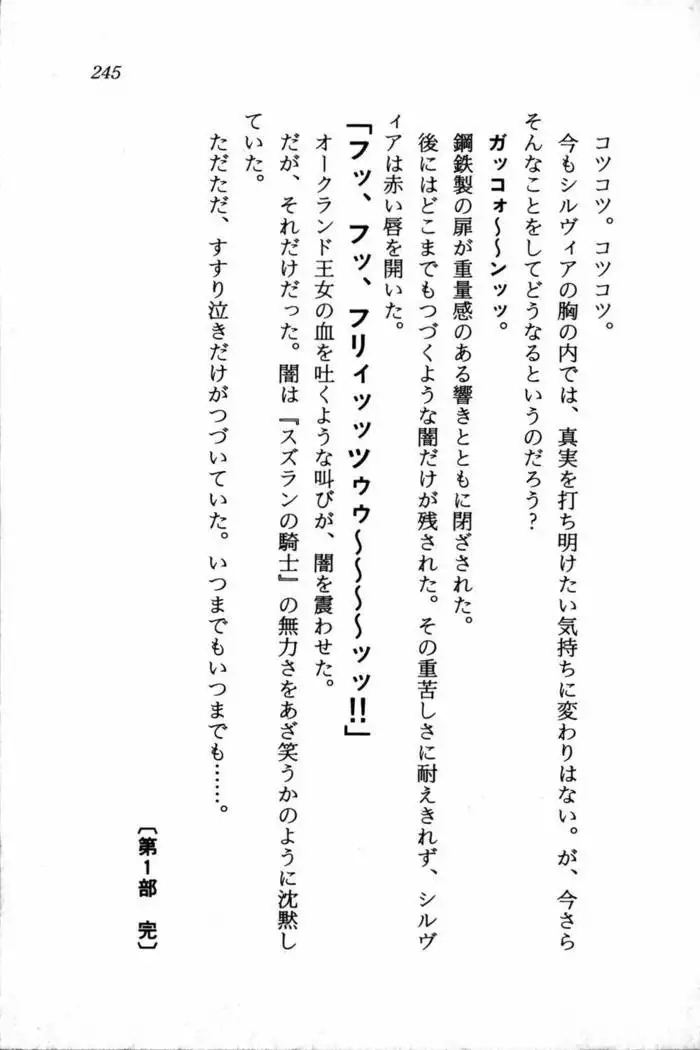 245
コツコツ。コツコツ。
今もシルヴィアの胸の内では、真実を打ち明けたい気持ちに変わりはない。が、今さら
そんなことをしてどうなるというのだろう?
ガッコォ〜〜ンッッ。
鋼鉄製の扉が重量感のある響きとともに閉ざされた。
後にはどこまでもつづくような闇だけが残された。その重苦しさに耐えきれず、シルヴ
ィアは赤い唇を開いた。
「フッ、フッ、フリィッッツゥゥ〜〜〜〜ッッ!!」
オークランド王女の血を吐くような叫びが、闇を震わせた。
だが、それだけだった。闇は『スズランの騎士』の無力さをあざ笑うかのように沈黙し
ていた。
ただただ、すすり泣きだけがつづいていた。いつまでもいつまでも……。
〔第1部 完〕